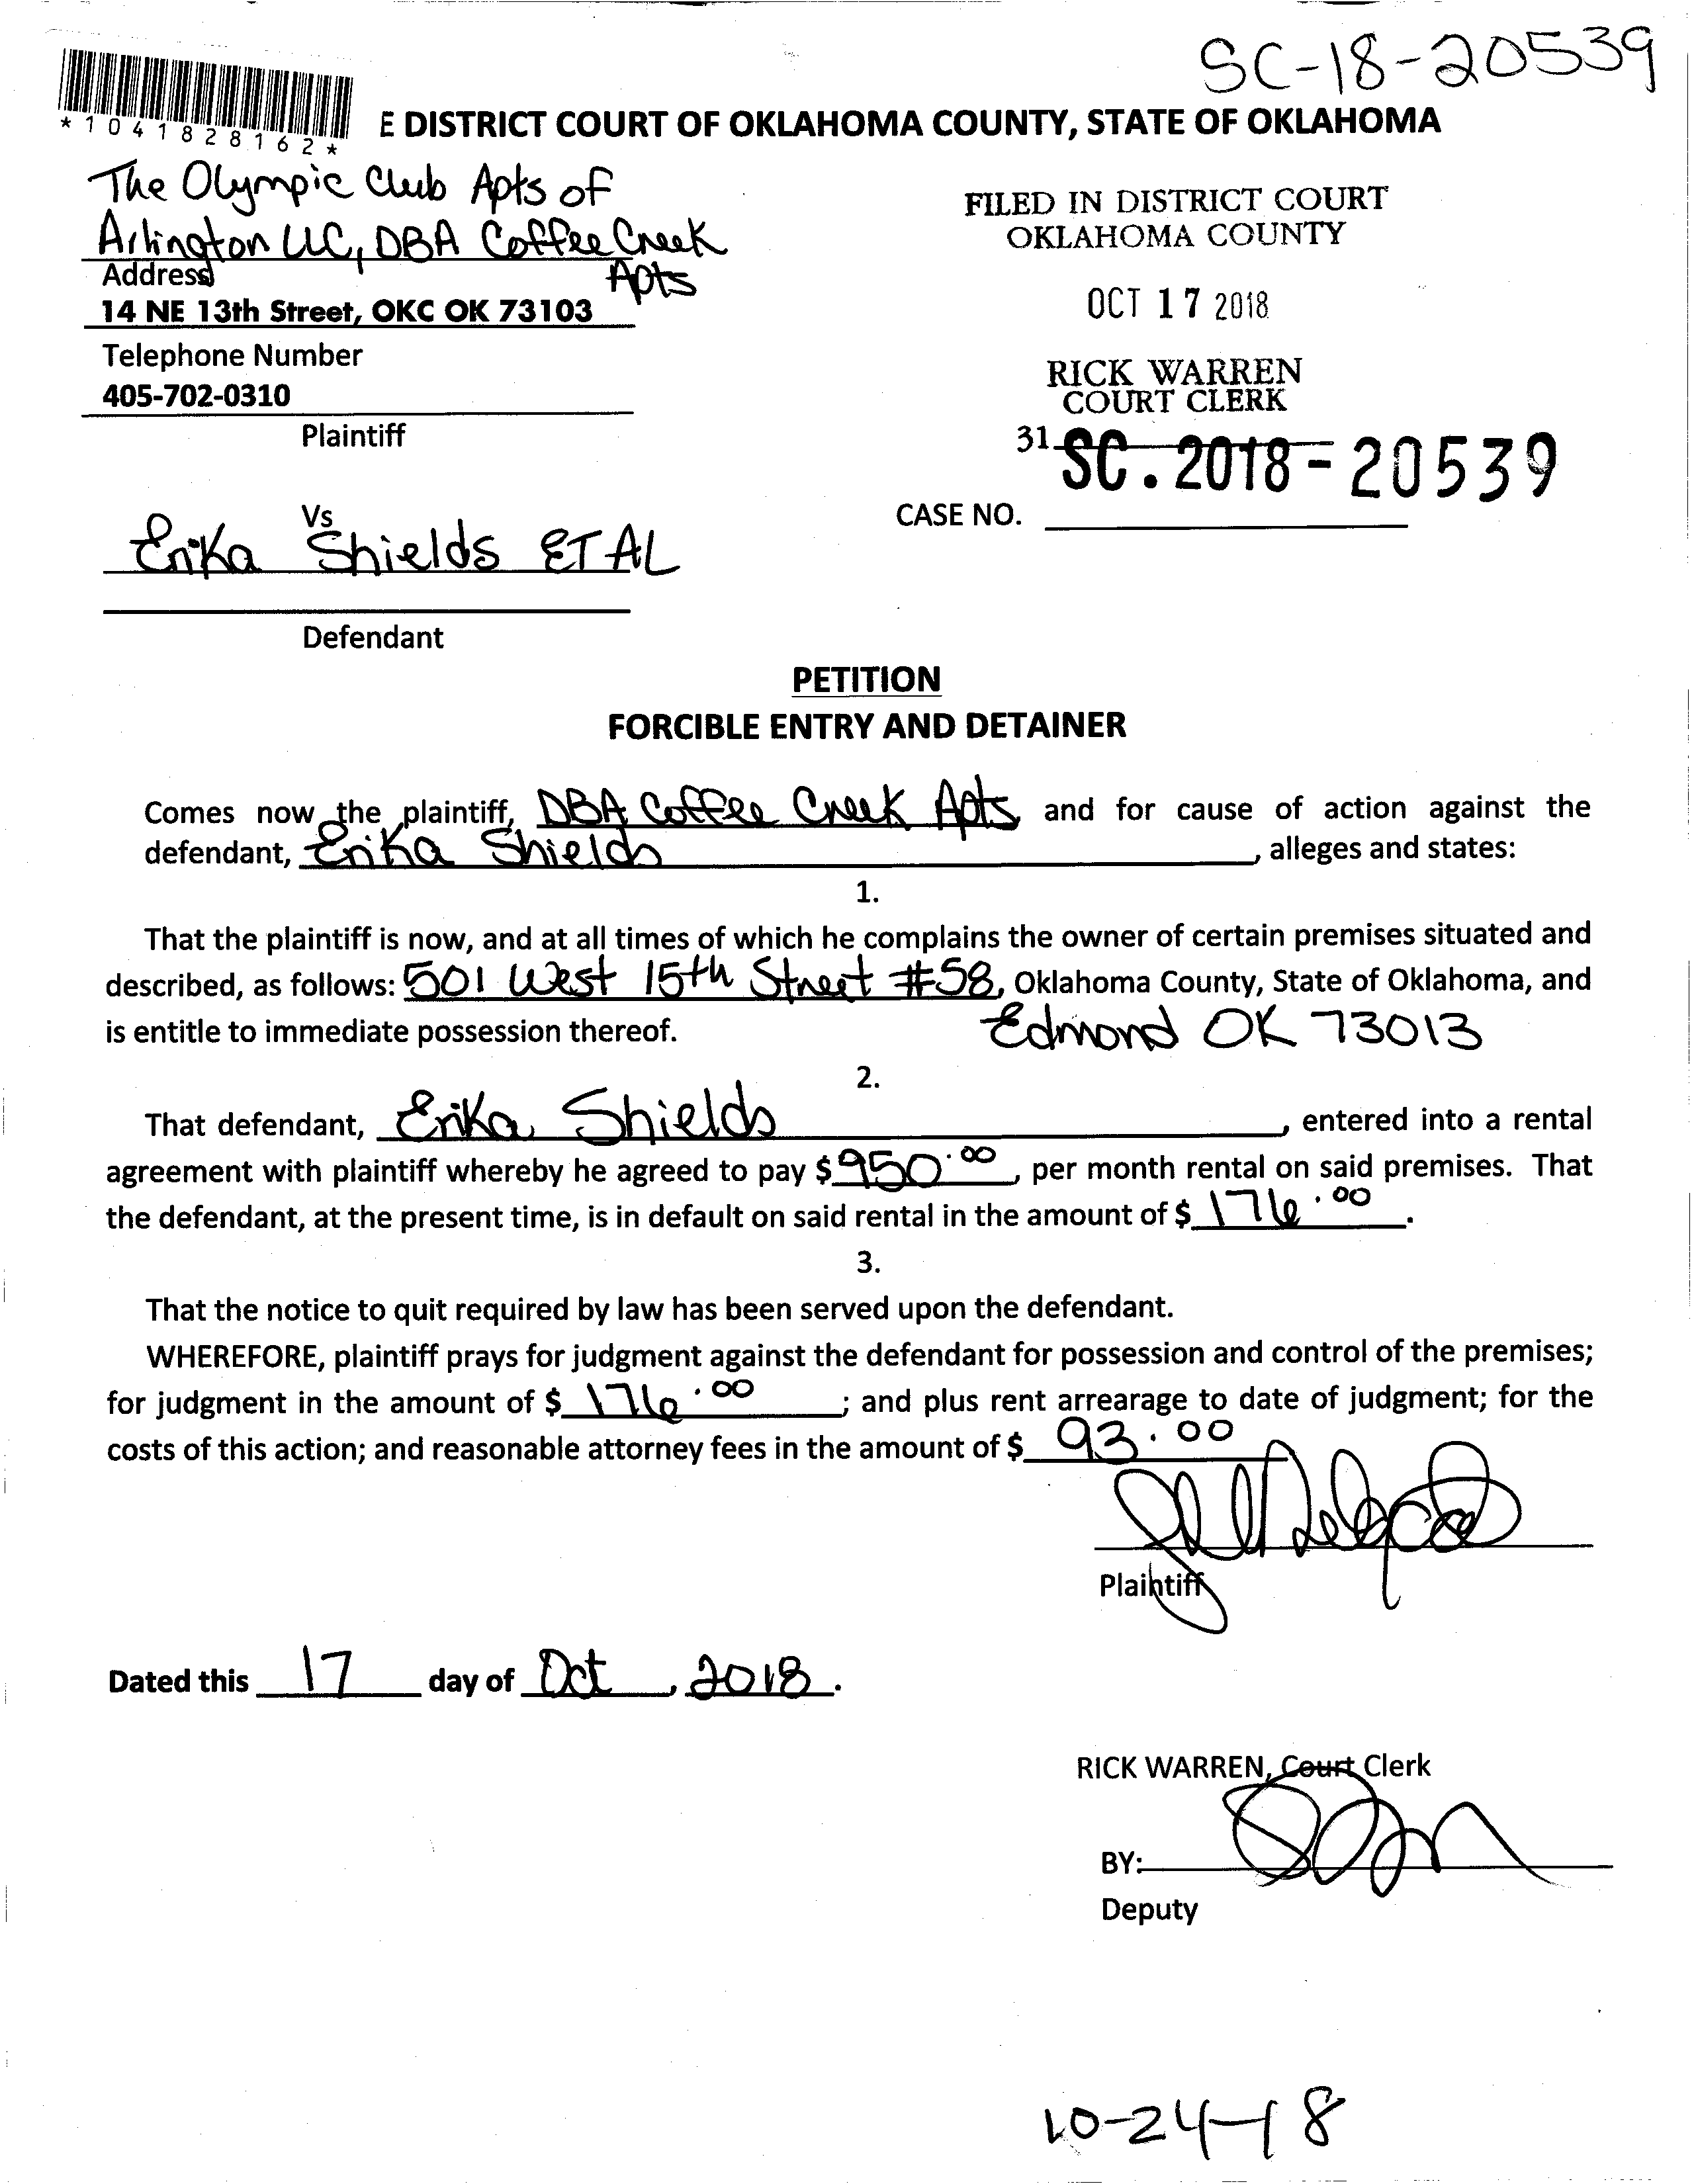 SC-18-20539
*1041828162*
E DISTRICT COURT OF OKLAHOMA COUNTY, STATE OF OKLAHOMA
The Olympic Club Apts of
Arlington LLC, DBA Coffee Creek
Apts
Address
14 NE 13th Street, OKC OK 73103
Telephone Number
405-702-0310
Plaintiff
FILED IN DISTRICT COURT
OKLAHOMA COUNTY
OCT 17 2018
RICK WARREN
COURT CLERK
31
SC. 2018-20539
CASE NO.
Vs
Erika Shields ET AL
Defendant
PETITION
FORCIBLE ENTRY AND DETAINER
Comes now the plaintiff, DBA Coffee Creek Apts and for cause of action against the
defendant, Erika Shields, alleges and states:
1.
That the plaintiff is now, and at all times of which he complains the owner of certain premises situated and
described, as follows: 501 West 15th Street #58, Oklahoma County, State of Oklahoma, and
is entitle to immediate possession thereof. Edmond OK 73013
2.
That defendant, Erika Shields, entered into a rental
agreement with plaintiff whereby he agreed to pay $ 950.00, per month rental on said premises. That
the defendant, at the present time, is in default on said rental in the amount of $ 176.00.
3.
That the notice to quit required by law has been served upon the defendant.
WHEREFORE, plaintiff prays for judgment against the defendant for possession and control of the premises;
for judgment in the amount of $ 176.00; and plus rent arrearage to date of judgment; for the
costs of this action; and reasonable attorney fees in the amount of $ 93.00
Plaintiff
Dated this 17 day of Oct, 2018.
RICK WARREN, Court Clerk
BY:
Deputy
10-24-18